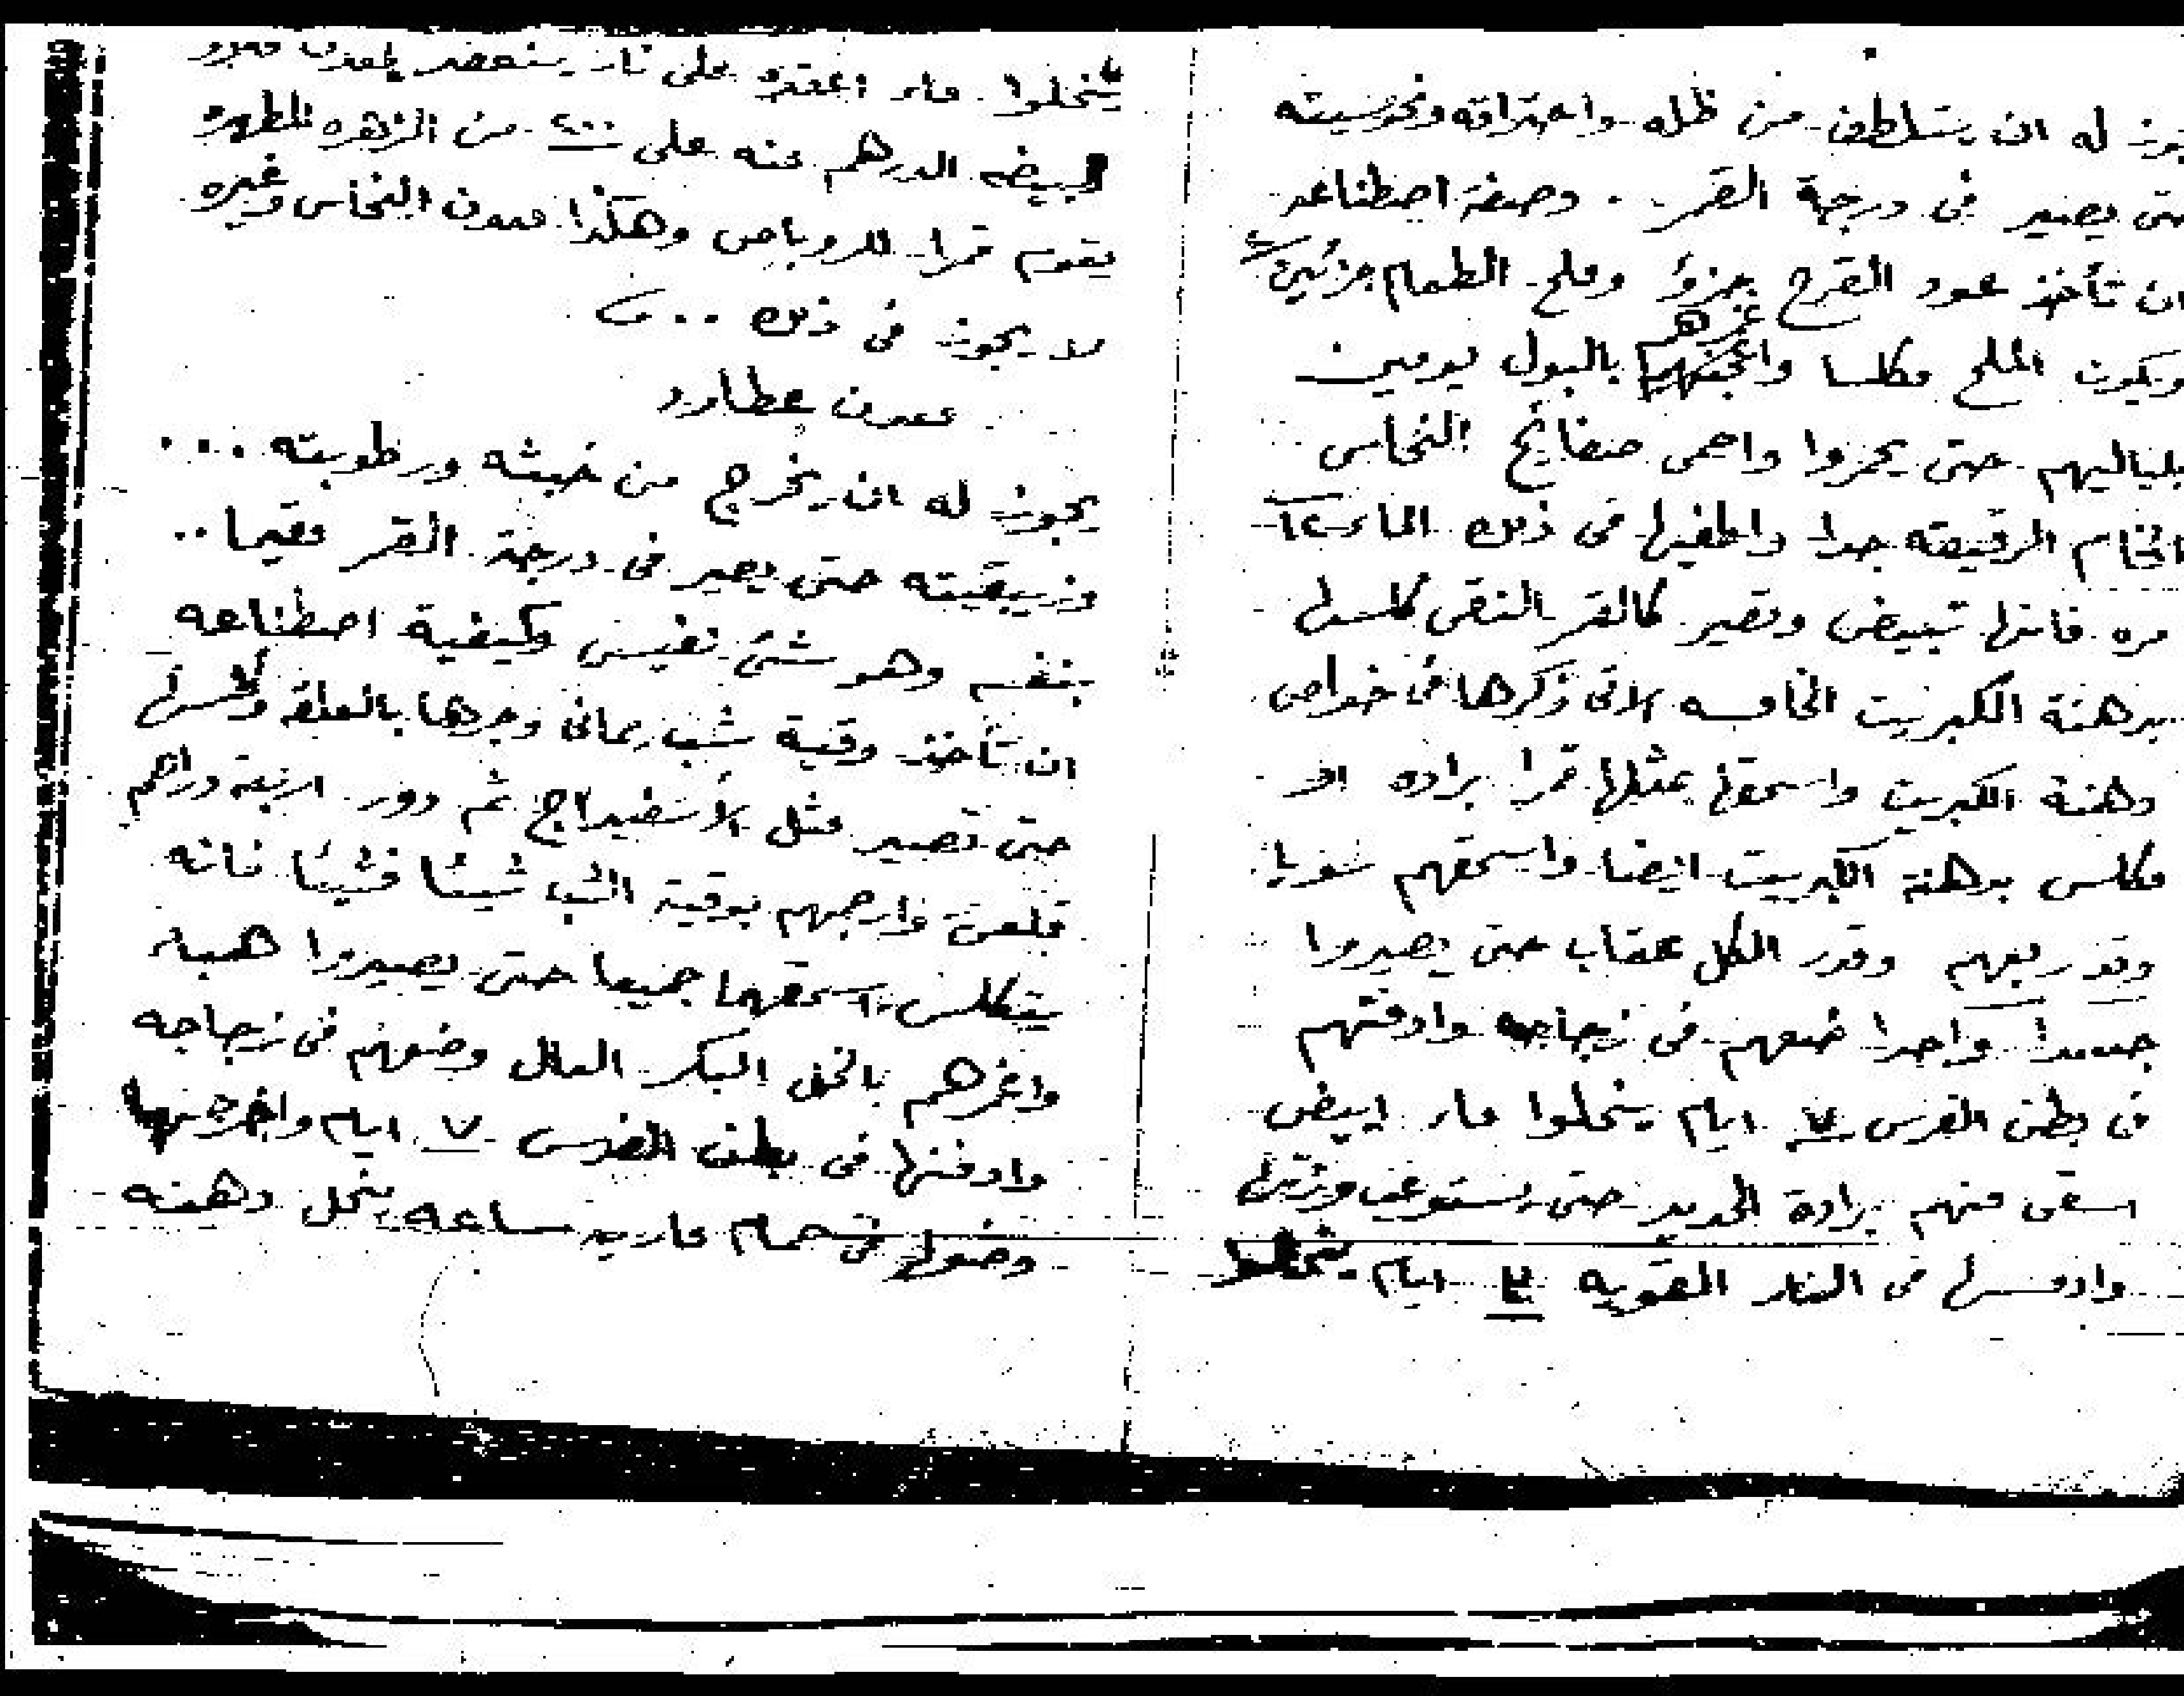 له ان يتلطف من ظله واحتراقه ونحوسيته
حتى يصير في درجة القمر . وصفة اصطناعه
ان تأخذ عود القرح جزؤ وملح الطعام جزئين
ويكون الملح مكلسا واعجنهم بالبول يومين
غرهم
بلياليهم حتى يحمروا واحمى صفايح النحاس
الخام الرقيقه جدا واطفيها في ذلك الماء ١٢
مره فانها تبيض وتصير كالقمر النقى كلسها
بدهنة الكبريت الخامسه الاتى ذكرها في خواص
دهنة الكبريت واسحقها بمثلها قمرا براده او
مكلس بدهنة الكبريت ايضا واسحقهم سويا
وقد ربعهم وقدر الكل عقاب حتى يصيروا
جسدا واحدا ضعهم في زجاجه وادفنهم
في بطن الفرس ٧ ايام ينحلوا ماء ابيض
اسقى منهم برادة الحديد حتى يستوعب وزنها
وادمسها في النار القويه ٣ ايام ينحلوا
ينحلوا ماء اعقده على نار ينعقد
ابيضه الدرهم منه على ٢٠٠ من الزهره المطهره
يقوم قمرا للروباص وهكذا معدن النحاس وغيره
لا يجوز في ذلك ..
معدن عطارد
يجوز له ان يخرج من خبثه ورطوبته ...
وزيبقيته حتى يصير في درجة القمر مقيما ..
بنفسه وهو شئ نفيس وكيفية اصطناعه
ان تأخذ وقية شب يمانى وجرها بالعلقه وكلسها
حتى تصير مثل الأسفيداج ثم دور اربعة دراهم
قلعى وارجمهم بوقية الشب شيئا فشيئا فانه
يتكلس اسحقهما جميعا حتى يصيروا هباء
واغمرهم بالخل البكر العال وضعهم في زجاجه
وادفنها في بطن الفرس ٧ ايام واخرجها
وضعها في حمام ماريه ساعه ينحل دهنه